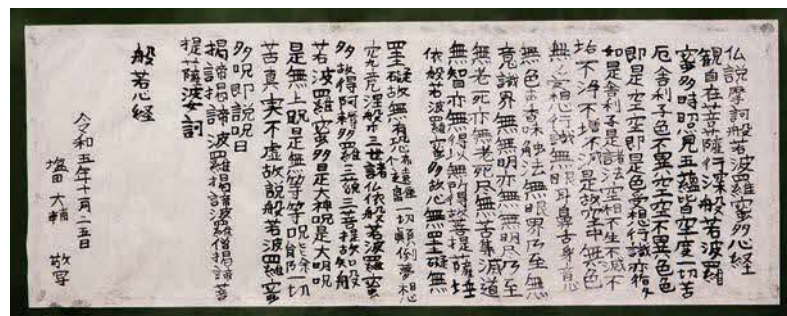 仏説摩訶般若波羅蜜多心経
観自在菩薩行深般若波羅
蜜多時照見五蘊皆空度一切苦
厄舎利子色不異空空不異色色
即是空空即是色受想行識亦復
如是舎利子是諸法空相不生不滅不
垢不浄不増不減是故空中無色
無受想行識無眼耳鼻舌身意
無色声香味触法無眼界乃至無
意識界無無明亦無無明尽乃至
無老死亦無老死尽無苦集滅道
無智亦無得以無所得故菩提薩埵
依般若波羅蜜多故心無罣礙無
罣礙故無有恐怖遠離一切顛倒夢想
究竟涅槃三世諸仏依般若波羅蜜
多故得阿耨多羅三藐三菩提故知般
若波羅蜜多是大神呪是大明呪
是無上呪是無等等呪能除一切
苦真実不虚故説般若波羅蜜
多呪即説呪曰
羯諦羯諦波羅羯諦波羅僧羯諦菩
提薩婆訶
般若心経
令和五年十月二五日
塩田大輔 敬写